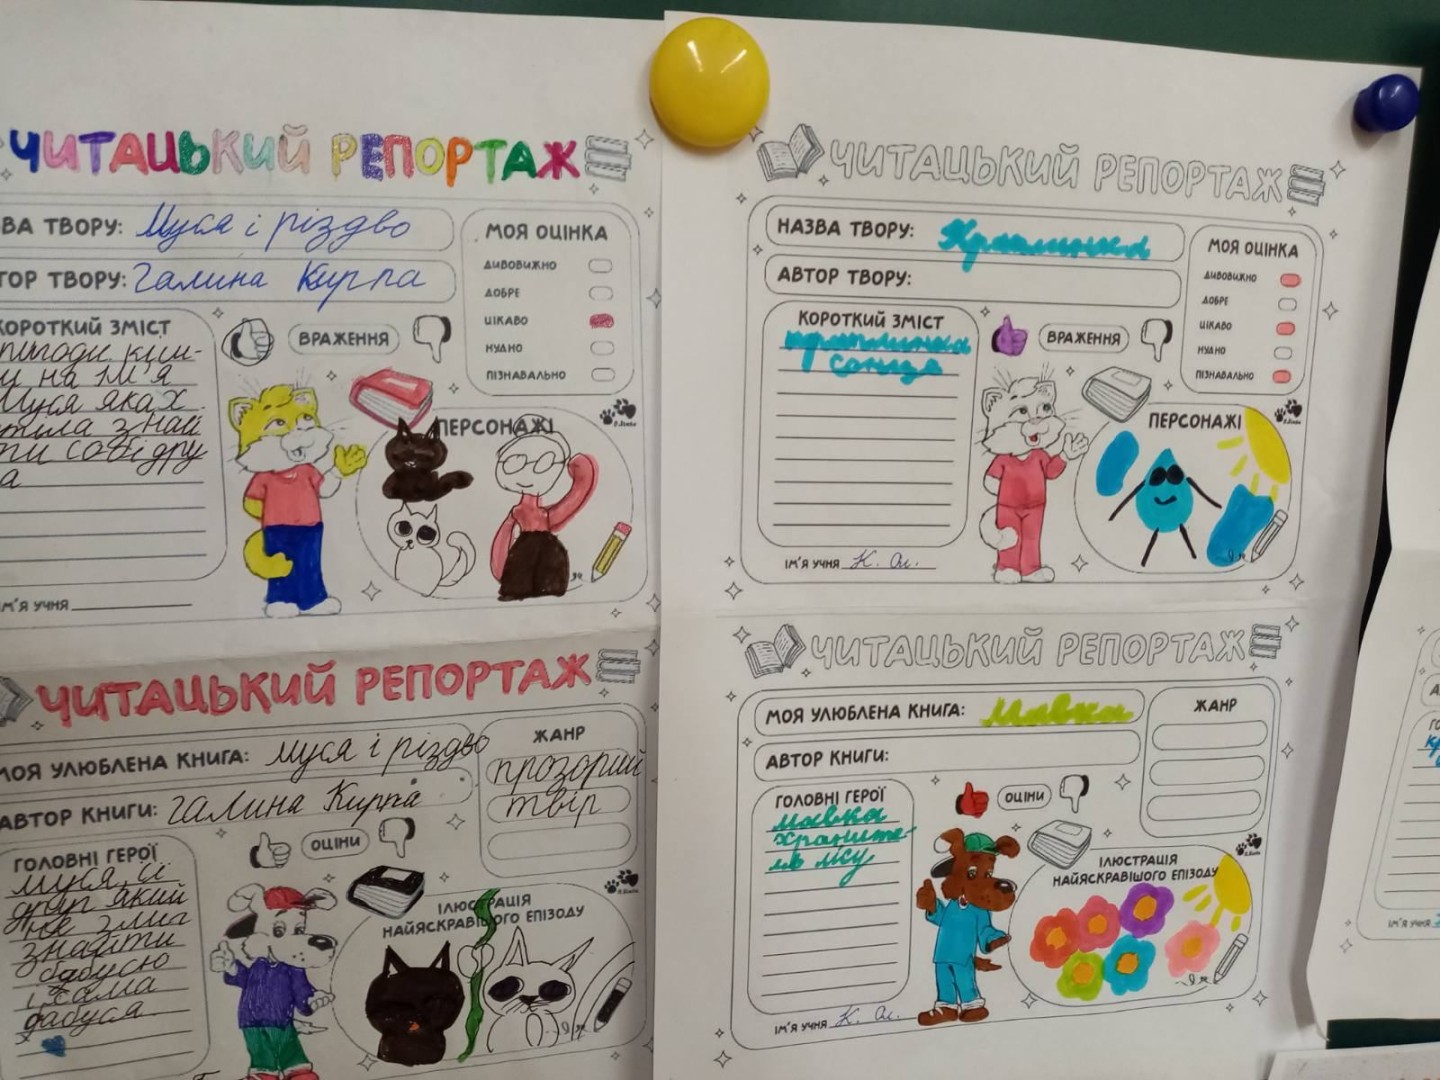 ЧИТАЦЬКИЙ РЕПОРТАЖ
ВА ТВОРУ: Муся і різдво
ТОР ТВОРУ: Галина Кирпа
МОЯ ОЦІНКА
ДИВОВИЖНО
ДОБРЕ
ЦІКАВО
НУДНО
ПІЗНАВАЛЬНО
КОРОТКИЙ ЗМІСТ
пригоди кіш-
у на ім'я
Муся яка х
тіла знай
ти собі дру
а
ВРАЖЕННЯ
ПЕРСОНАЖІ
М'Я УЧНЯ
ЧИТАЦЬКИЙ РЕПОРТАЖ
НАЗВА ТВОРУ: Краплинка
АВТОР ТВОРУ:
МОЯ ОЦІНКА
ДИВОВИЖНО
ДОБРЕ
ЦІКАВО
НУДНО
ПІЗНАВАЛЬНО
КОРОТКИЙ ЗМІСТ
краплинка
сонце
ВРАЖЕННЯ
ПЕРСОНАЖІ
ІМ'Я УЧНЯ К. Ол.
ЧИТАЦЬКИЙ РЕПОРТАЖ
МОЯ УЛЮБЛЕНА КНИГА: муся і різдво
АВТОР КНИГИ: Галина Кирпа
ЖАНР
прозорий
твір
ГОЛОВНІ ГЕРОЇ
муся, її
друг який
не зміг
знайти
бабусю
і сама
бабуся
ОЦІНИ
ІЛЮСТРАЦІЯ
НАЙЯСКРАВІШОГО ЕПІЗОДУ
ЧИТАЦЬКИЙ РЕПОРТАЖ
МОЯ УЛЮБЛЕНА КНИГА: Мавка
АВТОР КНИГИ:
ЖАНР
ГОЛОВНІ ГЕРОЇ
мавка
храните-
ль лісу
ОЦІНИ
ІЛЮСТРАЦІЯ
НАЙЯСКРАВІШОГО ЕПІЗОДУ
ІМ'Я УЧНЯ К. Ол.